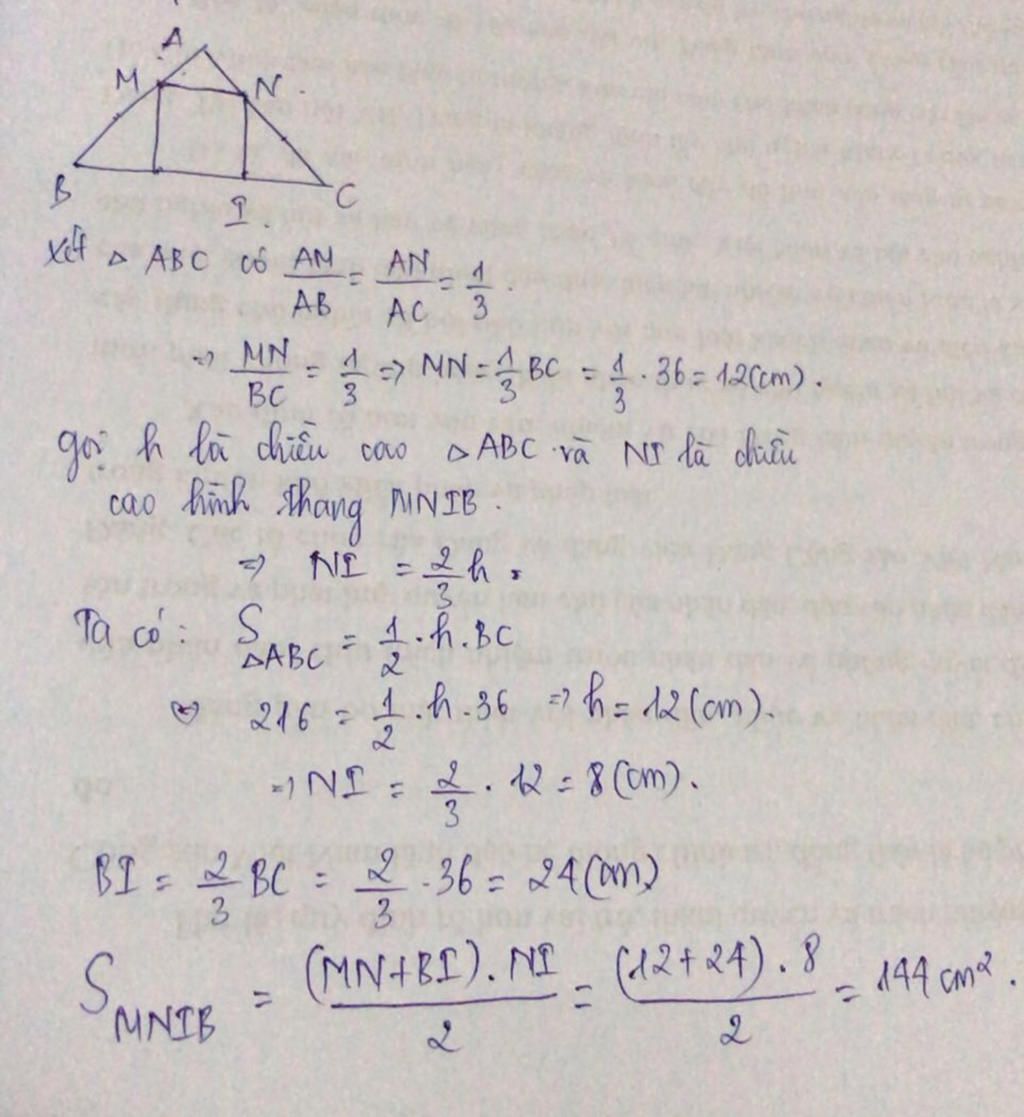 A
M N
B I C
Xét △ ABC có AM/AB = AN/AC = 1/3
⇒ MN/BC = 1/3 ⇒ MN = 1/3 BC = 1/3 . 36 = 12(cm).
gọi h là chiều cao △ ABC và NI là chiều
cao hình thang MNIB.
⇒ NI = 2/3 h.
Ta có: S△ABC = 1/2 . h . BC
216 = 1/2 . h 36 ⇒ h = 12(cm).
⇒ NI = 2/3 . 12 = 8(cm).
BI = 2/3 BC = 2/3 . 36 = 24(cm)
S MNIB = (MN+BI). NI / 2 = (12+24). 8 / 2 = 144 cm².